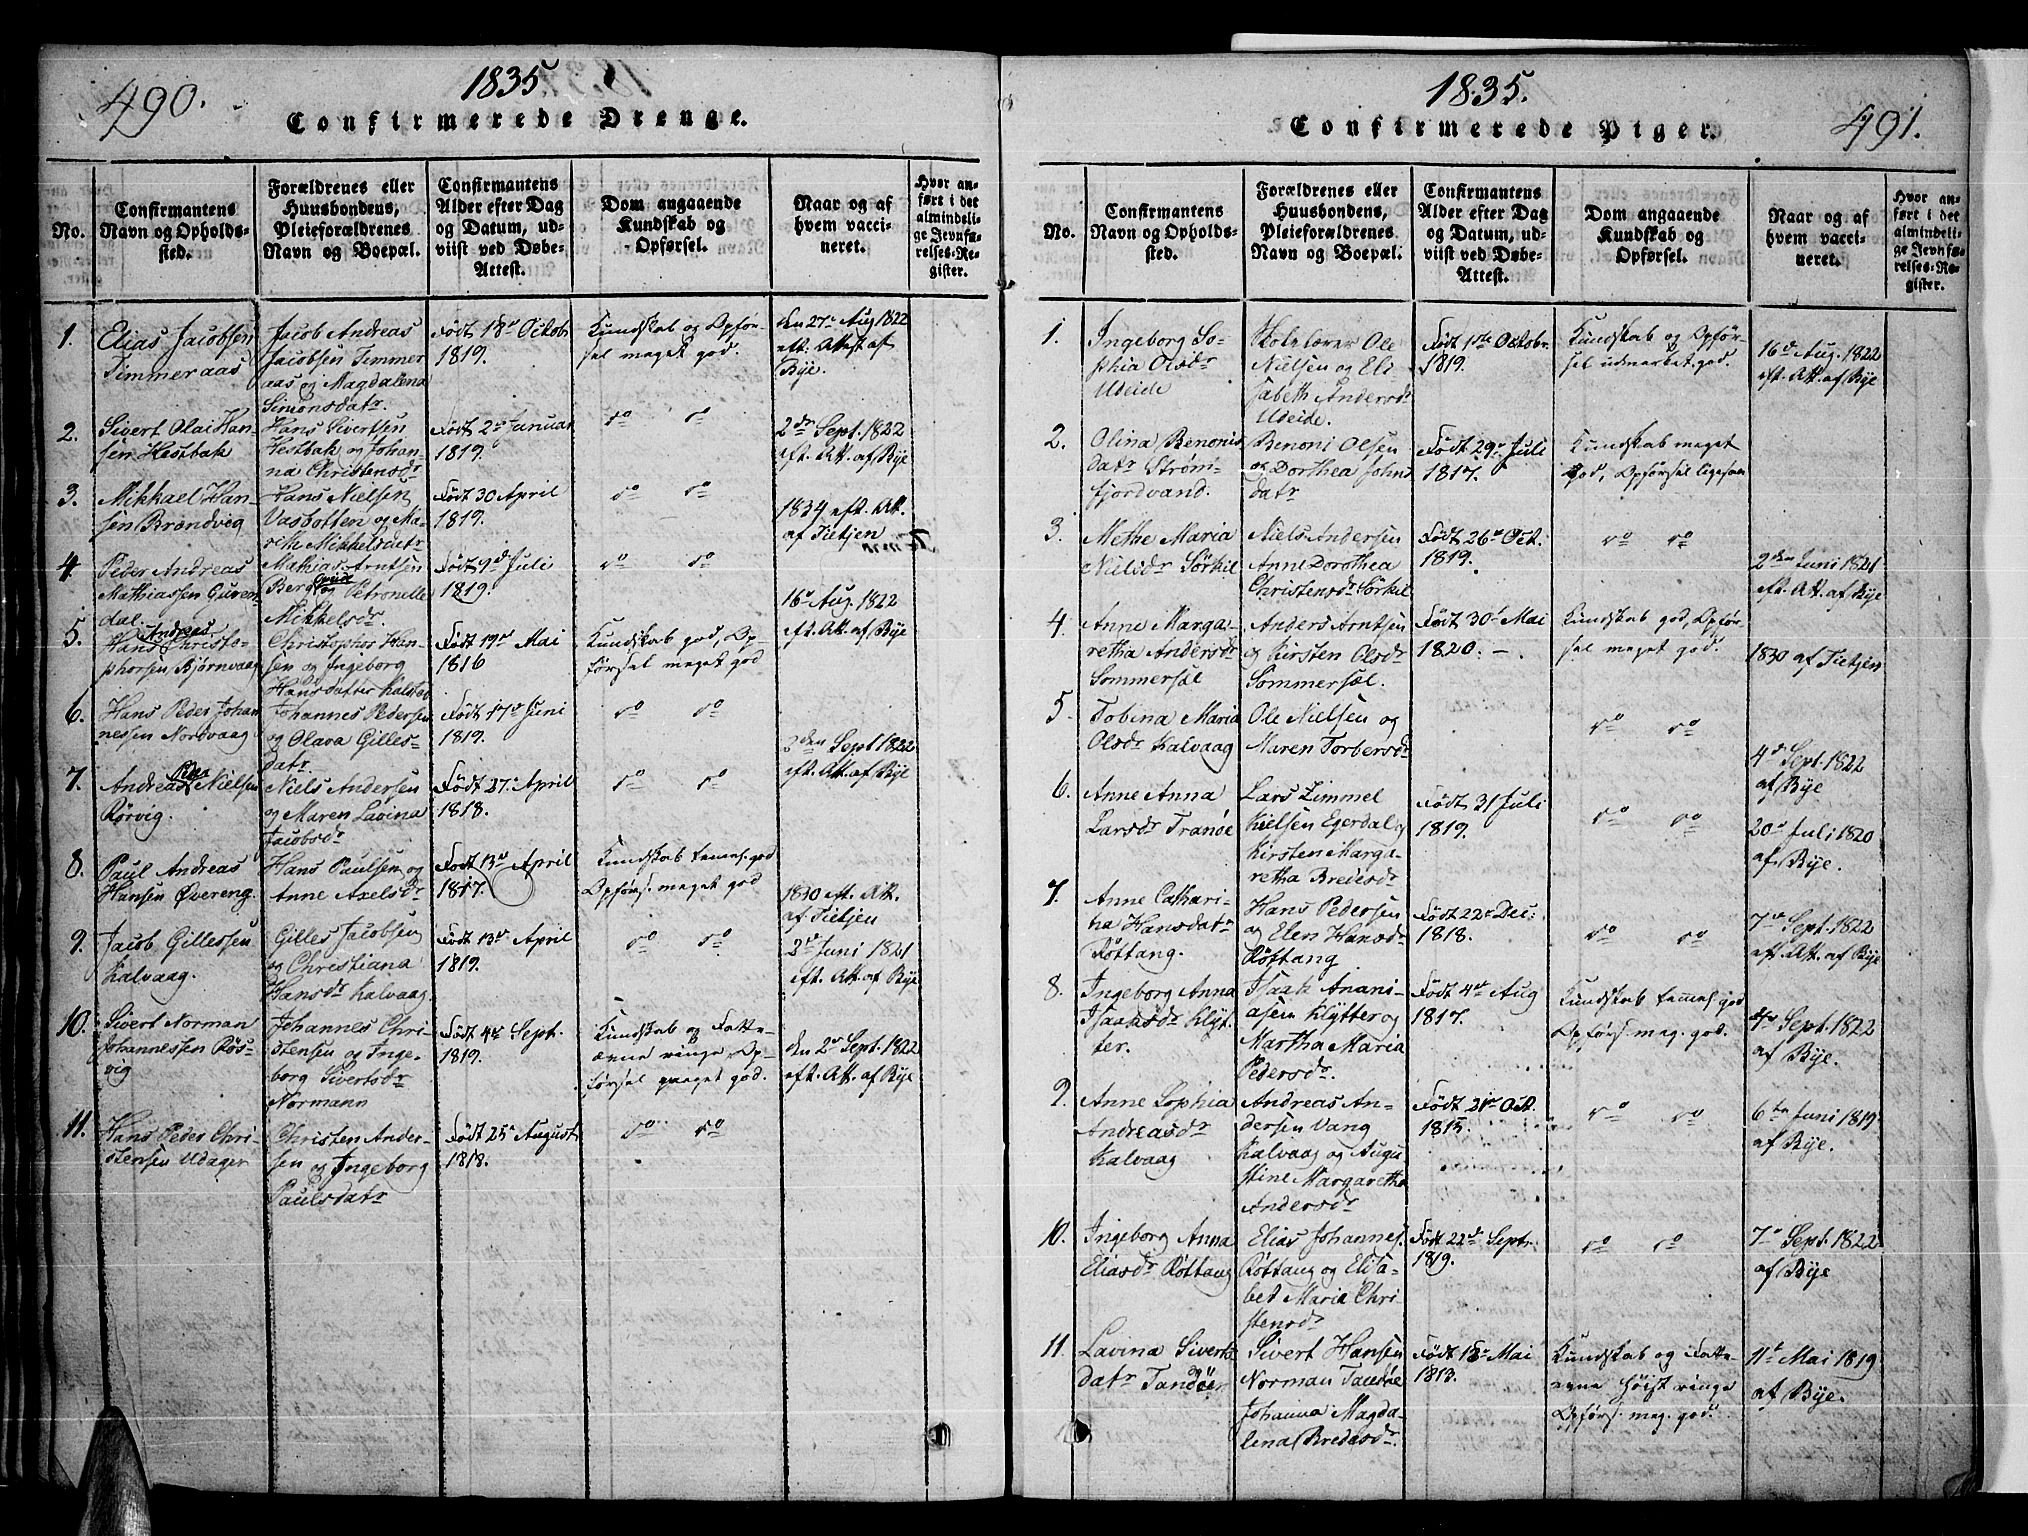 490.
1835
Confirmerede Drenge.
No.
Confirmantens
Navn og Opholds-
sted.
Forældrenes eller
Huusbondens,
Pleieforældrenes
Navn og Boepæl.
Confirmantens
Alder efter Dag
og Datum, ud-
viist ved Døbe-
Attest.
Dom angaaende
Kundskab og
Opførsel.
Naar og af
hvem vacci-
neret.
Hvor an-
ført i det
almindeli-
ge Jevnfø-
relses-Re-
gister.
1.
Elias Jacobsen
Timmeraas
Jacob Andreas
Jacobsen Timmer
aas og Magdalena
Simonsdatr.
Født 18de Octobr
1819.
Kundskab og Opfør-
sel meget god.
den 27de Aug 1822
eft. Attest af
Bÿe.
2.
Sivert Olai Han-
sen Hestbak
Hans Sivertsen
Hestbak og Johan-
na Christensdr
Født 2den Januar
1819.
do do
2den Sept. 1822
eft. Att. af Bÿe
3.
Mikkael Han-
sen Brændvig
Hans Nielsen
Vasbotten og Ma-
rethe Mikkelsdatr
Født 30 April
1819.
do do
1834 eft. Att.
af Tietjen
4.
Peder Andreas
Mathiassen Guven-
dal.
Mathias Arntsen
Berg og Petronelle
Mikkelsdr.
Født 9de Juli
1819.
do do
16de Aug. 1822
eft. Att. af Bÿe
5.
Andreas
Hans Christo-
phersen Bjørnvaag
Christopher Han-
sen og Ingeborg
Hansdatter
Født 19de Mai
1816
Kundskab god, Op-
førsel meget god
6.
Hans Peder Johan
nessen Nordvaag
Johannes Pedersen
og Olava Gilles-
datr
Født 17de Juni
1819.
do do
2den Sept 1822
eft. Att. af Bÿe
7.
Peder
Andreas Nielsen
Rørvig.
Niels Andersen
og Maren Lavina
Jacobsdr
Født 27de April
1818.
do do
8.
Paul Andreas
Hansen Øvereng.
Hans Paulsen og
Anne Axelsdr
Født 13de April
1817.
Kundskab temmel. god
Opførs. meget god
1830 eft. Att.
af Tietjen
9.
Jacob Gillessen
Kalvaag.
Gilles Jacobsen
og Christiana
Hansdr Kalvaag.
Født 13de April
1819.
do do
2den Juni 1821
eft. Att. af Bÿe
10.
Sivert Norman
Johannessen Røs-
vig
Johannes Chri-
stensen og Inge-
borg Sivertsdr
Normann
Født 4de Sept.
1819.
Kundskab og Fatte-
evne ringe, Op-
førsel meget god.
den 2den Sept. 1822
eft. Att. af Bÿe
11.
Hans Peder Chri-
stensen Udager
Christen Ander-
sen og Ingeborg
Paulsdatr
Født 25de August
1818.
do do
1835.
Confirmerede Piger.
491.
No.
Confirmantens
Navn og Opholds-
sted.
Forældrenes eller
Huusbondens,
Pleieforældrenes
Navn og Boepæl.
Confirmantens
Alder efter Dag
og Datum, ud-
viist ved Døbe-
Attest.
Dom angaaende
Kundskab og
Opførsel.
Naar og af
hvem vacci-
neret.
Hvor an-
ført i det
almindeli-
ge Jevnfø-
relses-Re-
gister.
1.
Ingeborg So-
phia Olsdr
Udeide
Skolelærer Ole
Nielsen og Eli-
sabeth Andersdr
Udeide.
Født 1ste Octobr.
1819.
Kundskab og Opfør-
sel udmærket god.
16de Aug. 1822
eft. Att. af Bÿe
2.
Olina Benonis
datr Strøm-
fjordvand.
Benoni Olsen
og Dorthea Johns
datr
Født 29de Juli
1817.
Kundskab meget
god, Opførsel ligesaa
3.
Methe Maria
Nielsdr Sørkil
Niels Andersen
Anne Dorothea
Christensdr Sørkil
Født 26de Oct.
1819.
do do
2den Juni 1821
eft. Att. af Bÿe
4.
Anne Marga-
retha Andersdr
Sommersæl
Anders Arntsen
og Kirsten Olsdr
Sommersæl.
Født 30te Mai
1820. -
Kundskab god, Opfør-
sel meget god.
1830 af Tietjen
5.
Tobina Maria
Olsdr Kalvaag
Ole Nielsen og
Maren Torbersdr
do do
4de Sept. 1822
af Bÿe
6.
Anne Anna
Larsdr Tranøe
Lars Zimmel
Nielsen Egerdal og
Kirsten Marga-
retha Bredesdr
Født 31 Juli
1819.
do do
20de Juli 1820
af Bÿe.
7.
Anne Cathari-
na Hansdatr
Røttang.
Hans Pedersen
og Elen Hansdr
Røttang
Født 22de Dec:
1818.
do do
7de Sept. 1822
eft. Att. af Bÿe
8.
Ingeborg Anna
Isaaksdr Klÿt-
ter.
Isaak Anani-
asen Klÿtter og
Martha Maria
Pedersdr.
Født 4de Aug
1817.
Kundskab temmel. god
Opførs. meg. god.
4de Sept. 1822
af Bÿe.
9.
Anne Sophia
Andreasdr
Kalvaag
Andreas An-
dersen Vang
Kalvaag og Augu-
stine Margaretha
Andersdr
Født 21de Oct.
1815.
do do
6te Juni 1819.
af Bÿe.
10.
Ingeborg Anna
Eliasdr Røttang
Elias Johannes.
Røttang og Elisa-
bet Maria Chri-
stensdr
Født 22de Sept.
1819.
do do
7de Sept. 1822
af Bÿe
11.
Lavina Siverts
datr Tandøe
Sivert Hansen
Norman og
Johanna Magda-
lena Bredesdr.
Født 18de Mai
1813.
Kundskab og Fatte-
evne høist ringe
Opførs. meg. god.
11te Mai 1819
af Bÿe.